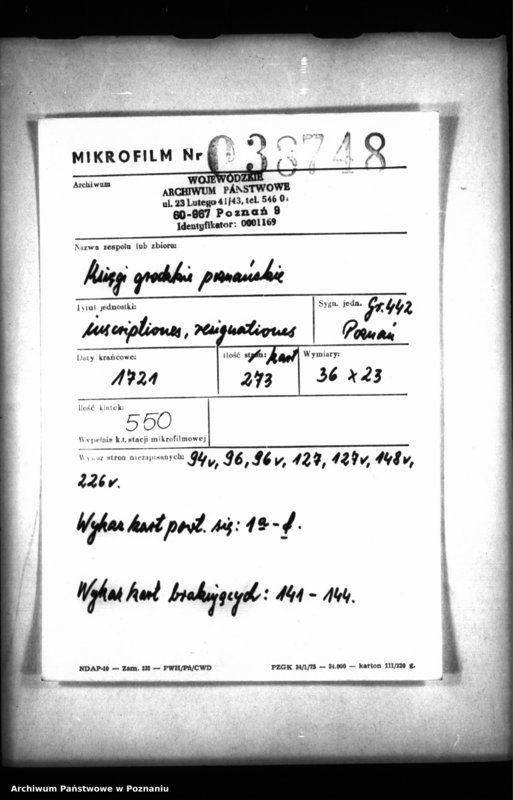 MIKROFILM Nr 038748
Archiwum
WOJEWÓDZKIE
ARCHIWUM PAŃSTWOWE
ul. 23 Lutego 41/43, tel. 546 0
60-967 Poznań 9
Identyfikator: 0001169
Nazwa zespołu lub zbioru:
Księgi grodzkie poznańskie
Tytuł jednostki:
inscriptiones, resignationes
Sygn. jedn. Gr. 442
Poznań
Daty krańcowe:
1721
Ilość stron: kart
273
Wymiary:
36 x 23
Ilość klatek:
550
Wypełnia k.t. stacji mikrofilmowej
Wykaz stron niezapisanych: 94v, 96, 96v, 127, 127v, 148v,
226v.
Wykaz kart powt. się: 1a-f.
Wykaz kart brakujących: 141 - 144.
NDAP-10 — Zam. 232 — PWH/Pń/CWD
PZGK 34/1/75 — 24.000 — karton 111/220 g.
Archiwum Państwowe w Poznaniu